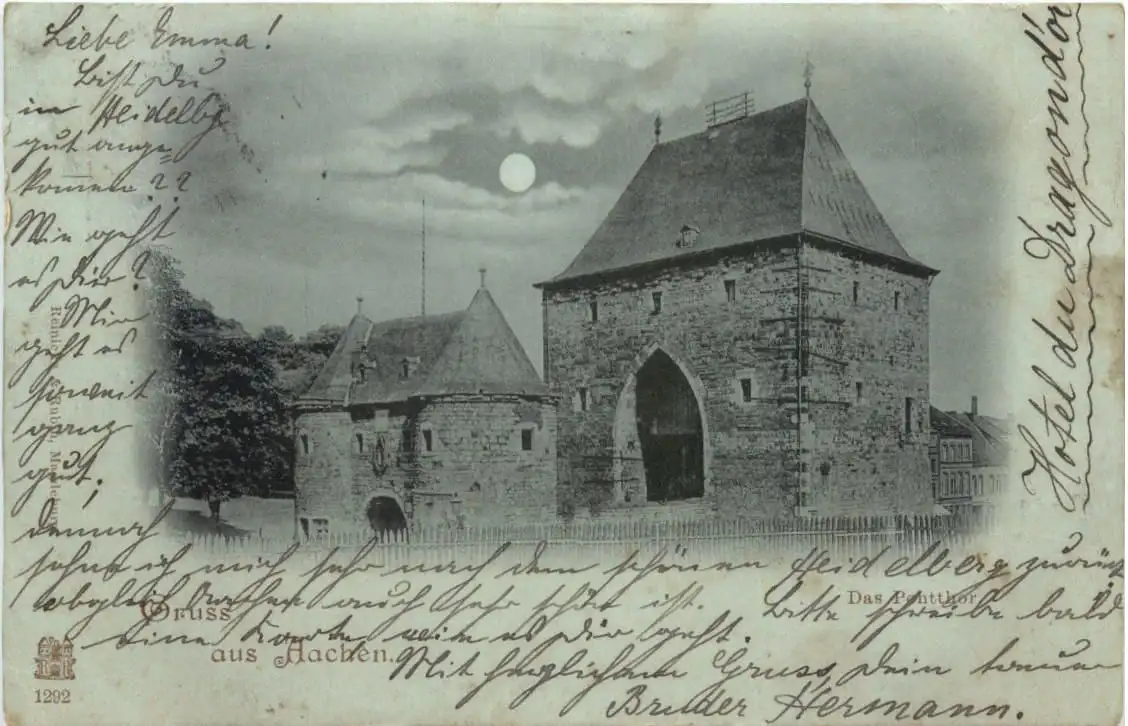 Liebe Emma!
Bist Du
in Heidelbg
gut ange=
kommen??
Wie geht
es Dir?
Mir
geht es
soweit
ganz
gut,
dennoch
sehne ich mich sehr nach dem schönen Heidelberg zurück
obgleich Aachen auch sehr schön ist. Bitte schreibe bald
eine Karte, wie es Dir geht.
Mit herzlichem Gruss, Dein treuer
Bruder Hermann.
Hotel du Dragon d'or
Das Pontthor.
Gruss
aus Aachen.
1292